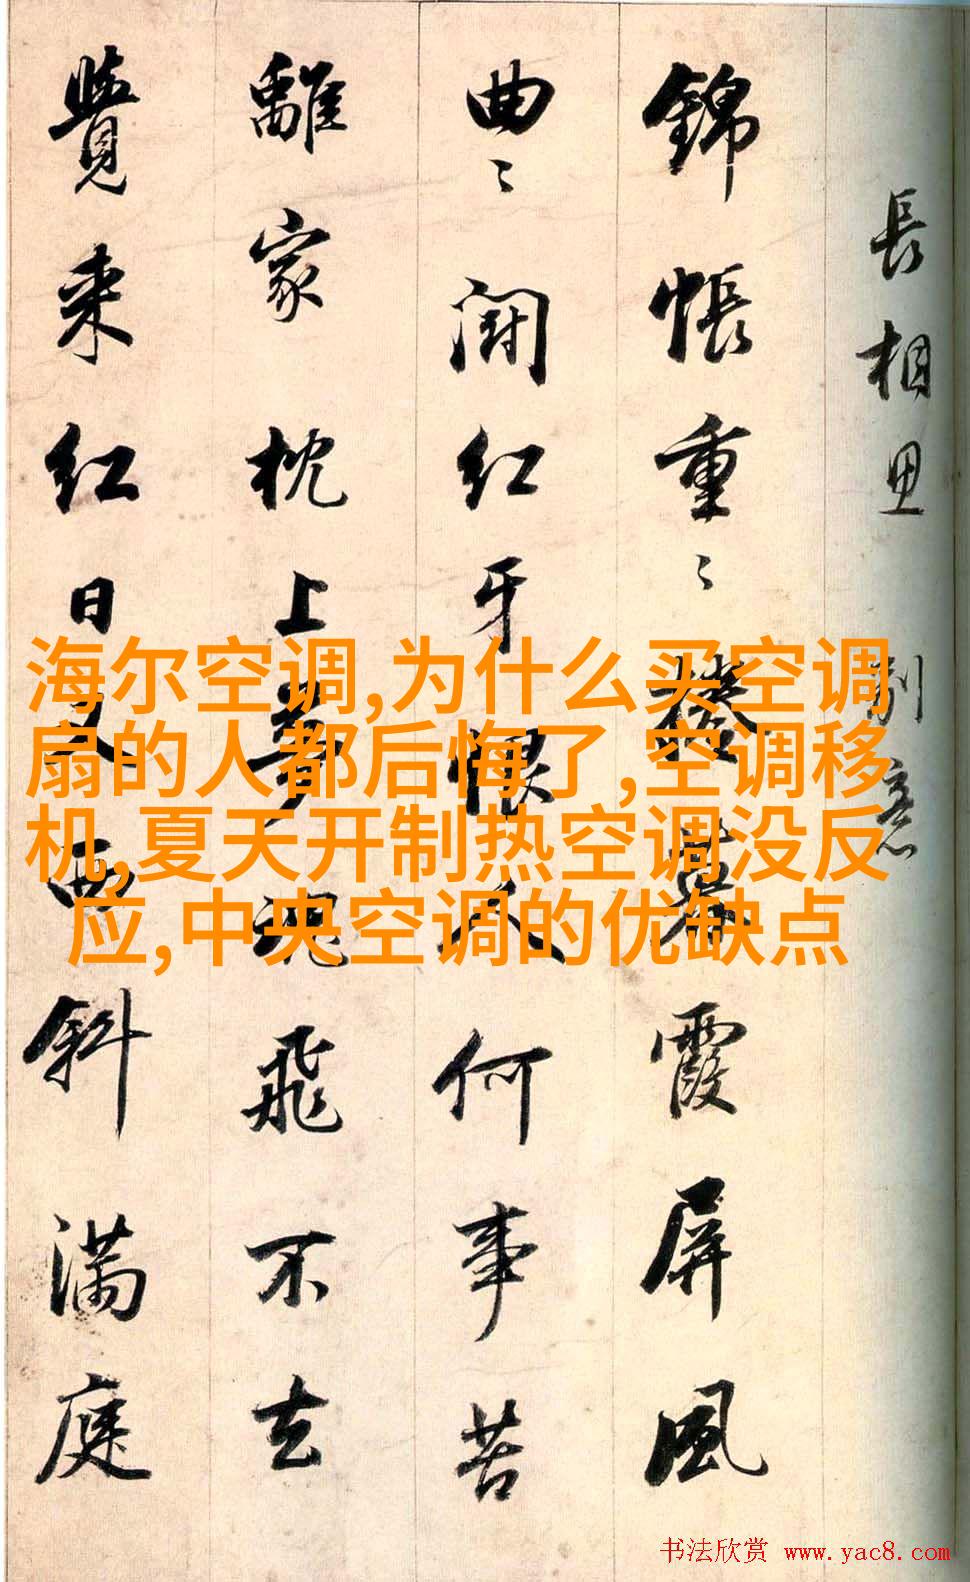 長相思 別意
錦帳重〻捲暮霞屏風
曲〻闘紅牙恨人何事苦
離家枕上夢魂飛不去
覺来紅日又西斜滿庭
海尔空调,为什么买空调
扇的人都后悔了,空调移
机,夏天开制热空调没反
应,中央空调的优缺点
书法欣赏 www.yac8.com